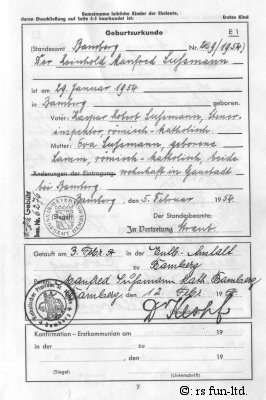 Gemeinsame leibliche Kinder der Eheleute,
deren Eheschließung auf Seite 4-5 beurkundet ist.
Erstes Kind
Geburtsurkunde
E 1
(Standesamt Bamberg Nr. 269/1954)
Der Reinhold Manfred Lußmann
ist am 29. Januar 1954
in Bamberg geboren.
Vater: Kaspar Robert Lußmann, Steuer-
inspektor, römisch-katholisch.
Mutter: Eva Lußmann, geborene
römisch-katholisch, beide
Änderungen der Eintragung: wohnhaft in Gaustadt
bei Bamberg
Bamberg, den 5. Februar 1954.
(Siegel)
Der Standesbeamte:
In Vertretung
Getauft am 3. Febr. 54 in der Entb.-Anstalt
zu Bamberg
Manfred Lußmann kath. Bamberg
Bamberg, 12. Febr. 1954
Konfirmation - Erstkommunion am 19
in zu
den 19
(Siegel)
(Unterschrift)
7
©: rs fun-ltd.